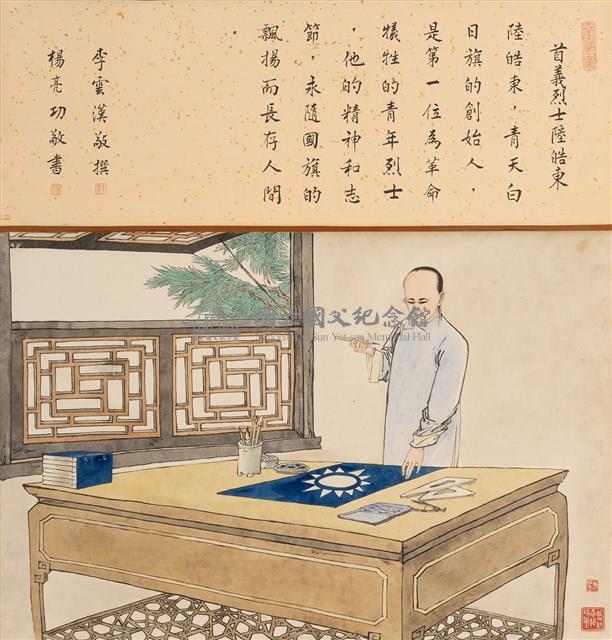 首義烈士陸皓東
陸皓東，青天白
日旗的創始人，
是第一位為革命
犧牲的青年烈士
，他的精神和志
節，永隨國旗的
飄揚而長存人間
。
李雲漢敬撰
楊亮功敬書
國父紀念館
Sun Yat-sen Memorial Hall